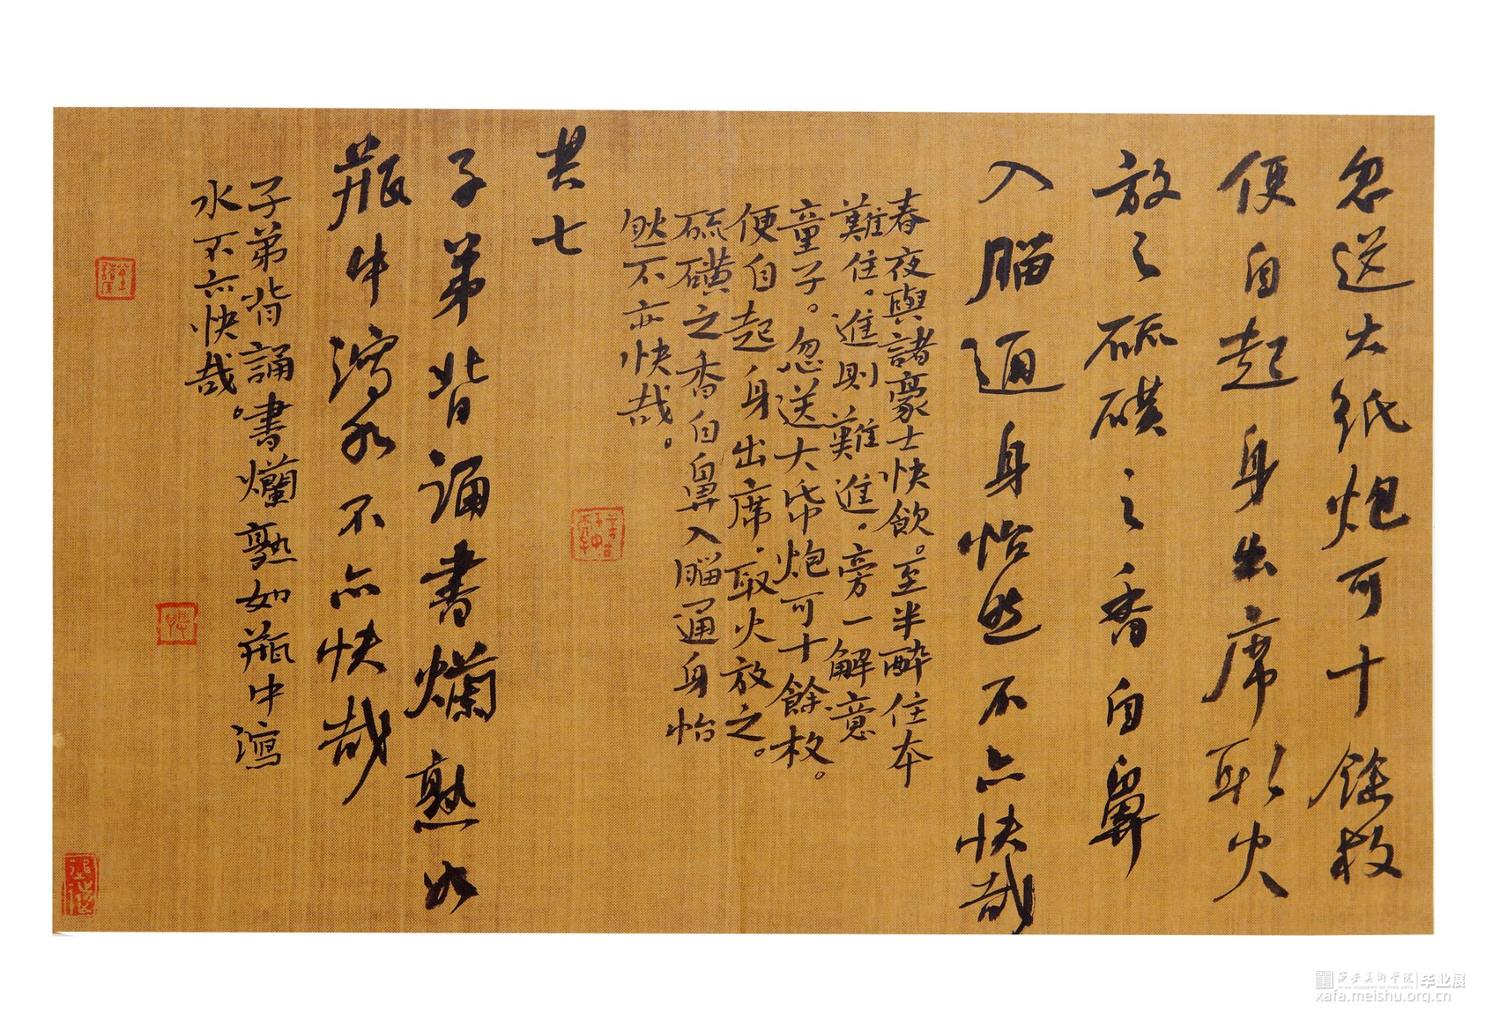 忽送大纸炮可十餘枚
便自起身出席取火
放之硫磺之香自鼻
入腦通身怡然不亦快哉
春夜與諸豪士快飲。至半醉住本
難住。進則難進，旁一解意
童子。忽送大帋炮可十餘枚。
便自起身出席，取火放之。
硫磺之香自鼻入腦通身怡
然不亦快哉。
其七
子弟背誦書爛熟如
瓶中瀉水不亦快哉
子弟背誦書爛熟如瓶中瀉
水不亦快哉。
西安美術學院 毕业展
xafa.meishu.org.cn